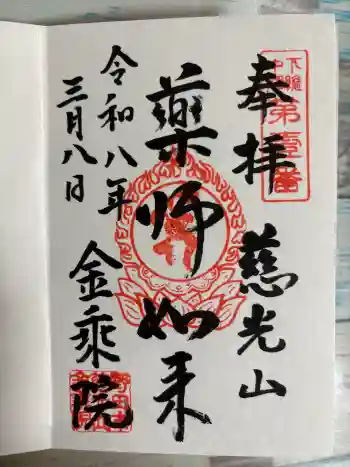 奉拝
慈光山
薬師如来
令和八年
三月八日
金乗院
第壹番